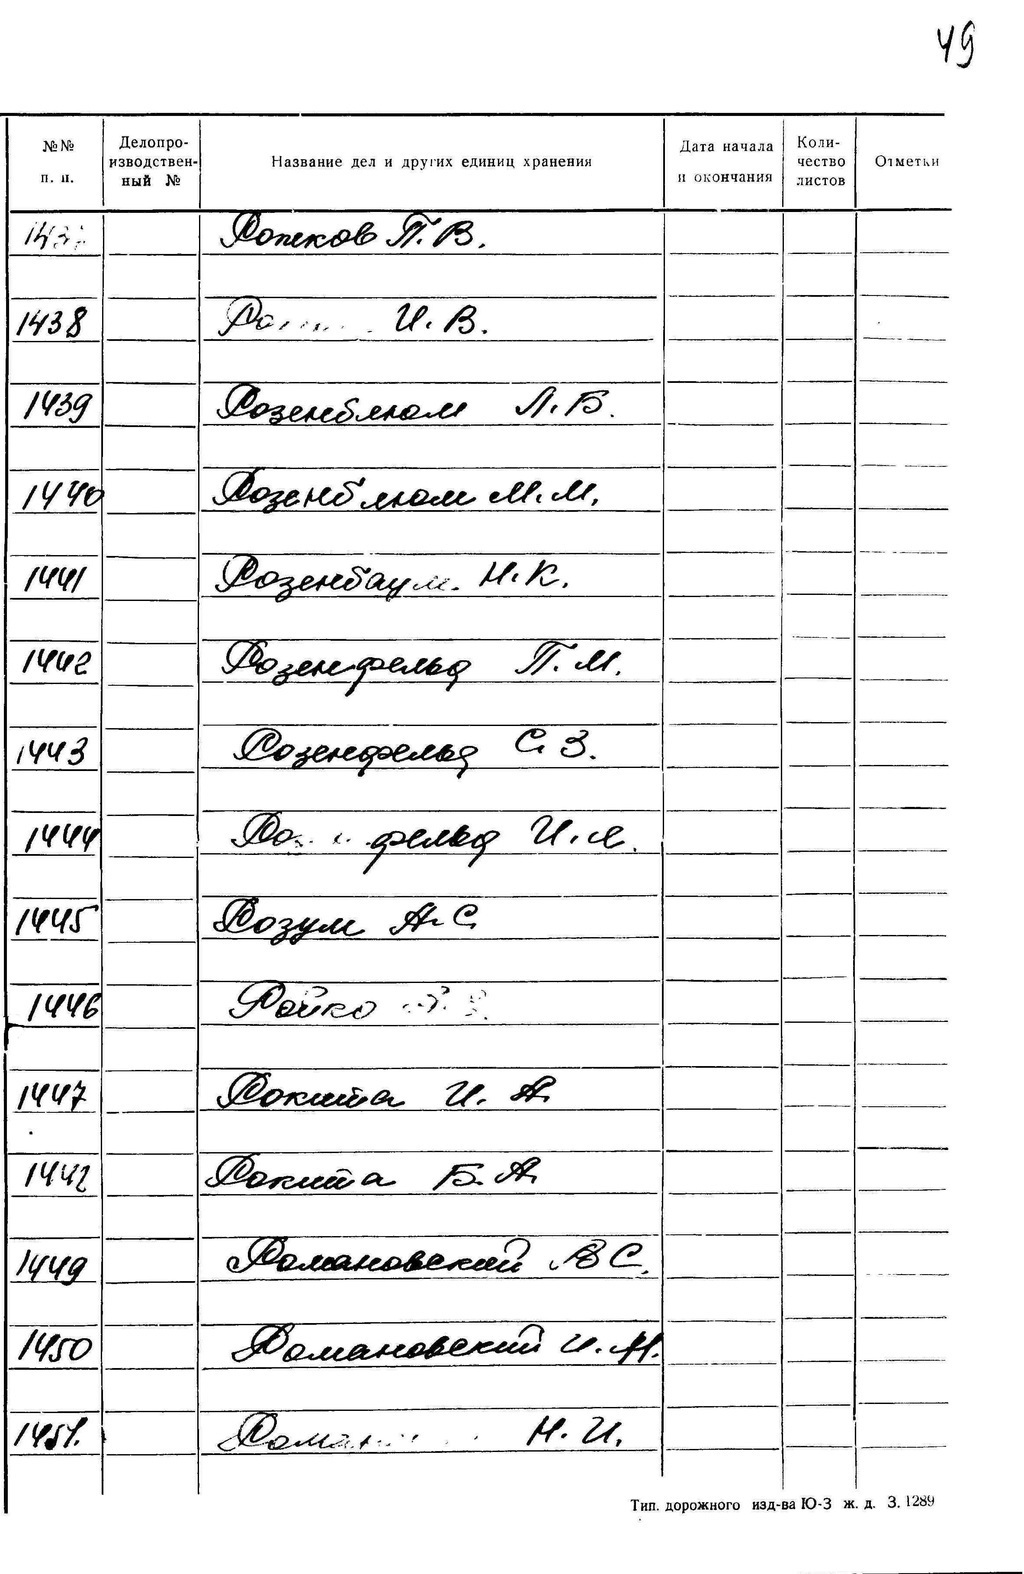 49
№№ п. п. Делопроизводственный № Название дел и других единиц хранения Дата начала и окончания Количество листов Отметки
П. В.
1438 И. В.
1439 Розенблюм Л. Б.
1440 Розенблюм М. М.
1441 Розенбаум Н. К.
1442 Розенфельд П. М.
1443 Розенфельд С. З.
1444 И. Я.
1445 Розум А. С.
1446 Ройко
1447 Рокита И. А.
1442 Рокита Б. А.
1449 Романовский В С.
1450 Романовский И. М.
1451. Н. И.
Тип. дорожного изд-ва Ю-З ж. д. З. 1289